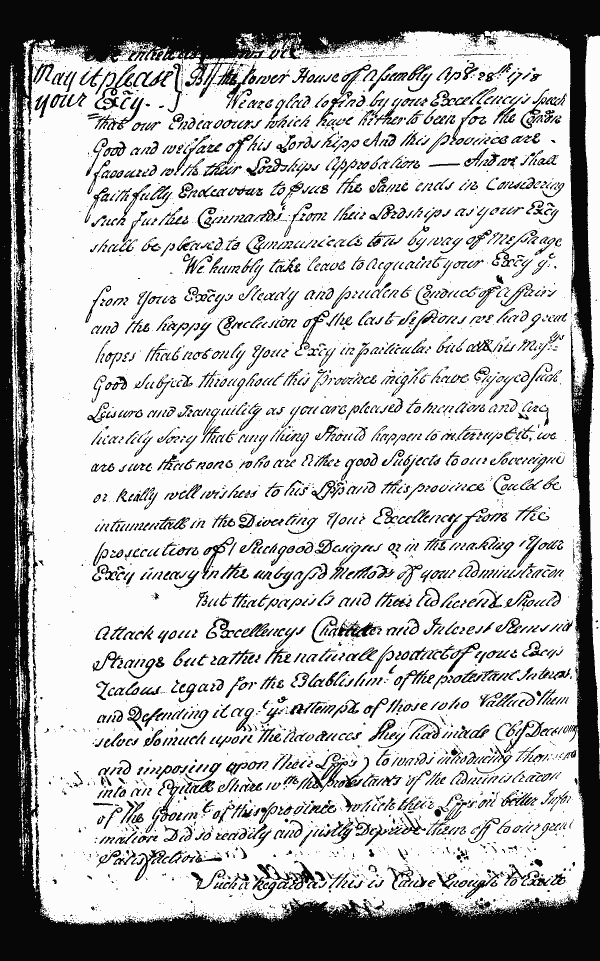 May it please } By the Lower House of Assembly Apr. 28th 1718
your Excy. . } We are glad to find by your Excellencys Speech
that our Endeavours which have hitherto been for the Comon
Good and welfare of his Lordshipp And this Province are
favoured with their Lordships Approbation — And we shall
faithfully Endeavour to psue the Same ends in Considering
Such further Commands from their Lordships as your Excy
shall be pleased to Communicate to us by way of Message
We humbly take leave to acquaint your Excy yt.
from Your Excys Steady and prudent Conduct of Affairs
and the happy Conclusion of the last Sessions we had great
hopes that not only Your Excy in particular but all his Majtys
Good Subjects throughout this Province might have Enjoyed such
Leisure and Tranquility as you are pleased to mention and are
heartily Sorry that any thing Should happen to interrupt it, we
are sure that none who are Either good Subjects to our Sovereigne
or Really well wishers to his Lspp and this province Could be
intrumentall in the Diverting Your Excellency from the
prosecution of Such good Designes or in the making Your
Excy uneasy in the unbyas'd Methods of your Administracon
But that papists and their Adherents Should
Attack your Excellencys and Interest Seems not
Strange but rather the naturall product of your Excys
Zealous regard for the Establishmt. of the protestant Interest
and Defending it agt. ye attempts of those who Vallued them
selves So much upon the advances they had made (by Deceiving
and imposing upon their Lspps) towards introducing themselves
into an Equall Share wth. the protestants of the Administracon
of the Governmt. of this province which their Lspps on better Infor
mation Did so readily and justly Deprive them off to our great
Satisfaction —
Such a Regard as this is Cause Enough to Excite